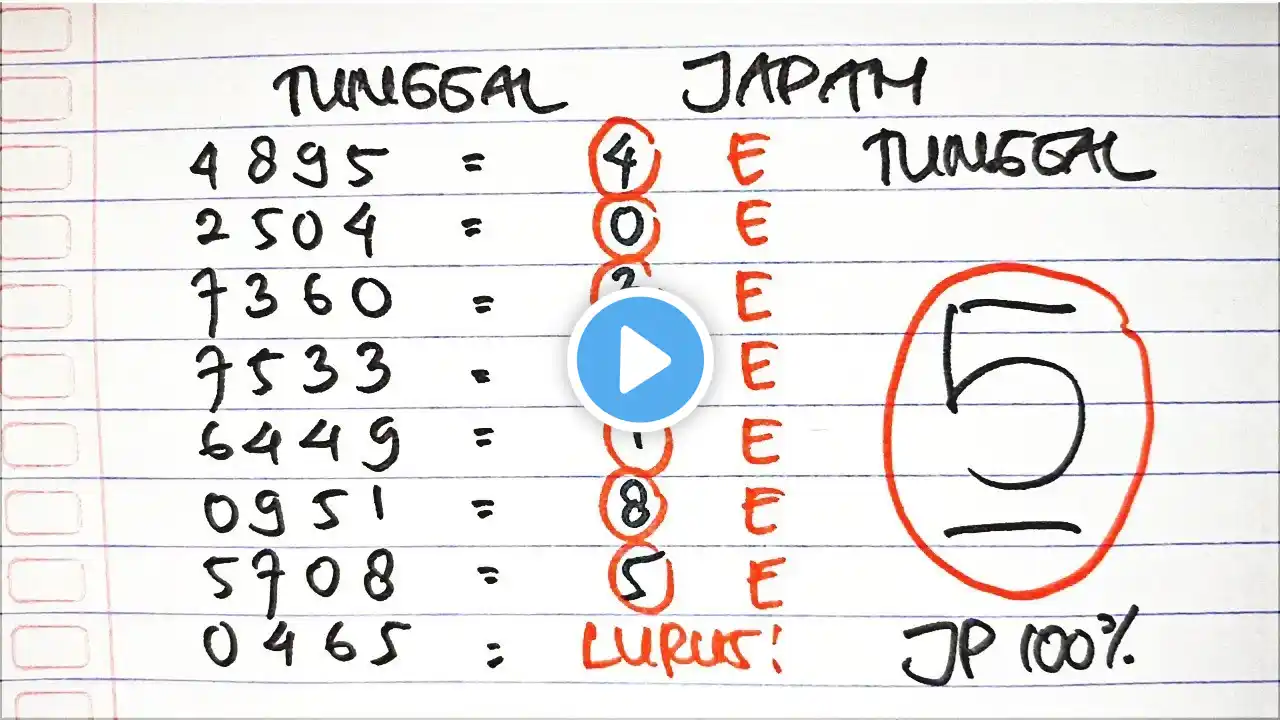 TUNGGAL JAPAN
4895 = 4 E TUNGGAL
2504 = 0 E
7360 = E
7533 = E
6449 = E
0951 = 8 E
5708 = 5 E
0465 = LURUS!
5
JP 100%